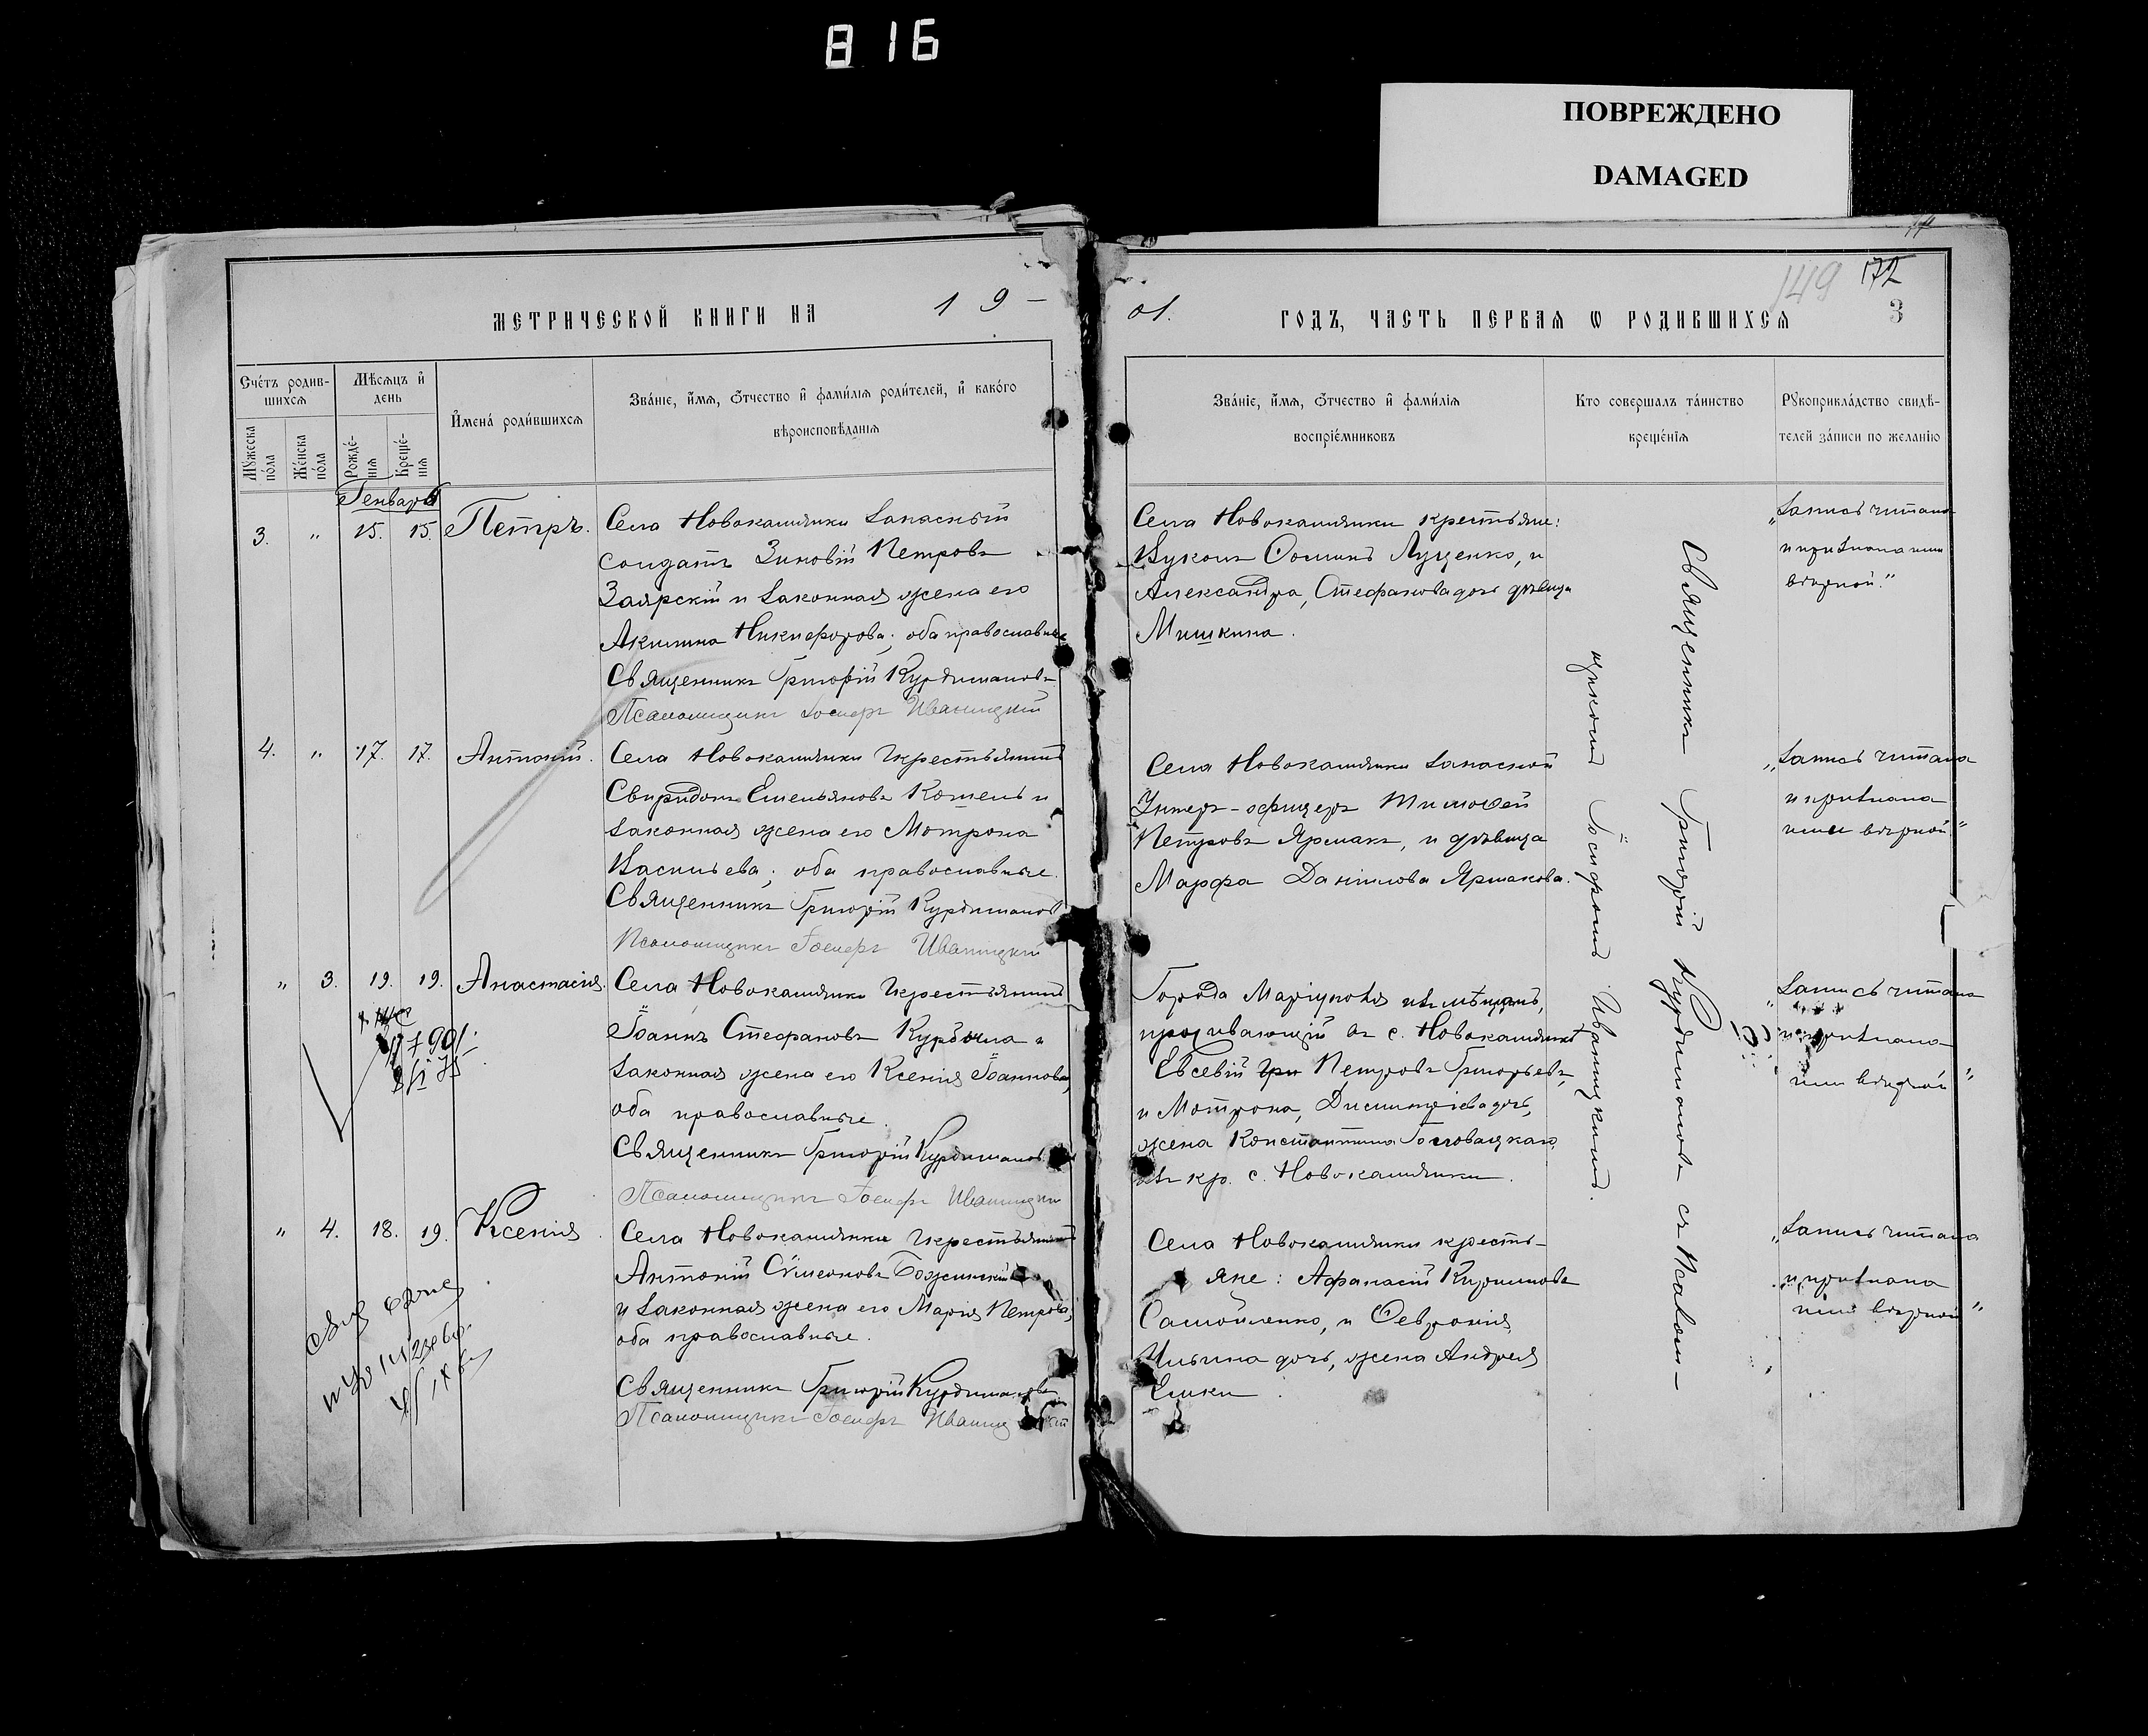 816
ПОВРЕЖДЕНО
DAMAGED
149 172
МЕТРИЧЕСКОЙ КНИГИ НА 19-
01. ГОДЪ, ЧАСТЬ ПЕРВАЯ Ѡ РОДИВШИХСЯ 3
Сче́тъ родив-
шихсѧ
Мꙋжеска по́ла
Же́нска по́ла
Мѣсѧцъ и҆ день
Рожде́-нїѧ
Креще́-нїѧ
И҆мена̀ роди́вшихсѧ
Зва́нїе, и҆́мѧ, ѻ҆́тчество и҆ фами́лїѧ роди́телей, и҆ како́го
вѣроисповѣ́данїѧ
Зва́нїе, и҆́мѧ, ѻ҆́тчество и҆ фами́лїѧ
воспрїе́мниковъ
Кто совершалъ та́инство
креще́нїѧ
Рꙋкоприкла́дство свидѣ́-
телей за́писи по жела́нїю
Генварь
3. " 15. 15. Петръ.
Села Новокаменки запасный
солдатъ Зиновій Петровъ
Заярскій и законная жена его
Акилина Никифорова; оба православные
Священникъ Григорій Курдимановъ
Псаломщикъ Іосифъ Иваницкій
Села Новокаменки крестьяне:
Вуколъ Ѳоминъ Луценко, и
Александра, Стефанова дочь дѣвица
Мишкина.
"Запись читана
и признана нами
вѣрной."
4. " 17. 17. Антоній.
Села Новокаменки крестьянинъ
Свиридонъ Емельяновъ Кошель и
законная жена его Мотрона
Васильева; оба православные.
Священникъ Григорій Курдимановъ
Псаломщикъ Іосифъ Иваницкій
Села Новокаменки запасной
Унтеръ-офицеръ Тимоѳей
Петровъ Ярмакъ, и дѣвица
Марфа Данилова Ярмакова.
"Запись читана
и признана
нами вѣрной."
" 3. 19. 19. Анастасія.
Села Новокаменки крестьянинъ
Іоаннъ Стефановъ и
законная жена его Ксенія Іоаннова,
оба православные.
Священникъ Григорій Курдимановъ
Псаломщикъ Іосифъ Иваницкій
Города Маріуполя изъ мѣщанъ,
проживающій въ с. Новокаменкѣ
Евсевій Петровъ Григорьевъ,
и Мотрона, Димитріева дочь,
жена Константина
изъ кр. с. Новокаменки.
"Запись читана
и признана
нами вѣрной"
" 4. 18. 19. Ксенія.
Села Новокаменки крестьянинъ
Антоній Сѵмеоновъ
и законная жена его Марія Петрова;
оба православные.
Священникъ Григорій Курдимановъ
Псаломщикъ Іосифъ Иваницкій
Села Новокаменки кресть-
яне: Афанасій Кирилловъ
Самойленко, и Ѳевронія
Ильина дочь, жена Андрея
"Запись читана
и признана
нами вѣрной"
Священникъ Григорій Курдимановъ съ Псалом-
щикомъ Іосифомъ Иваницкимъ.